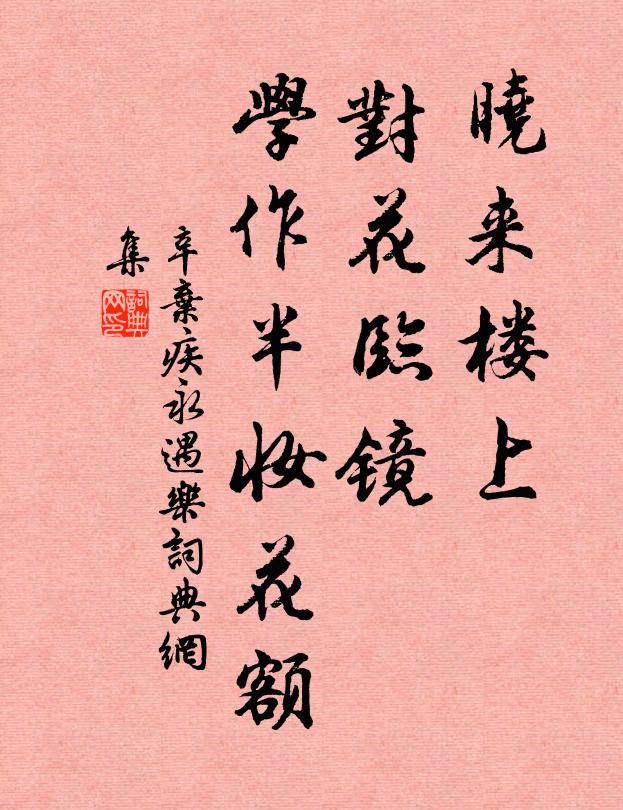 曉来楼上
對花臨鏡
學作半妝花額
辛棄疾永遇樂詞典網
集
詞典网印